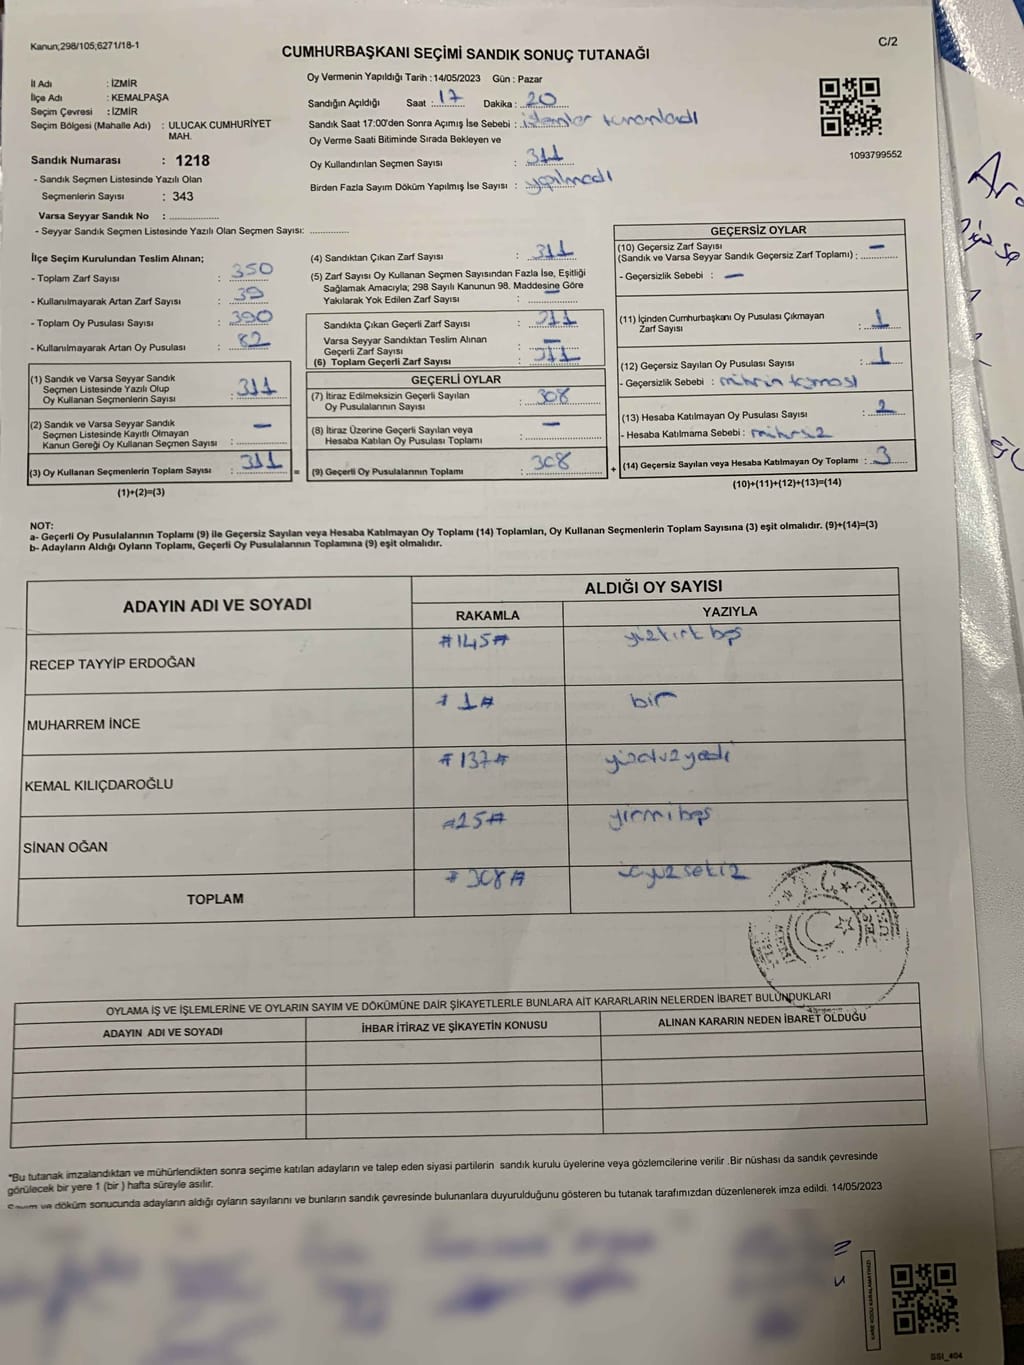 Kanun;298/105;6271/18-1
C/2
CUMHURBAŞKANI SEÇİMİ SANDIK SONUÇ TUTANAĞI
İl Adı : İZMİR
İlçe Adı : KEMALPAŞA
Seçim Çevresi : İZMİR
Seçim Bölgesi (Mahalle Adı) : ULUCAK CUMHURİYET
MAH.
Sandık Numarası : 1218
- Sandık Seçmen Listesinde Yazılı Olan
Seçmenlerin Sayısı : 343
Varsa Seyyar Sandık No : ....................
- Seyyar Sandık Seçmen Listesinde Yazılı Olan Seçmen Sayısı: ................
Oy Vermenin Yapıldığı Tarih : 14/05/2023 Gün : Pazar
Sandığın Açıldığı Saat : 17 Dakika : 20
Sandık Saat 17:00'den Sonra Açımış İse Sebebi : işlemler tamamladı
Oy Verme Saati Bitiminde Sırada Bekleyen ve
Oy Kullandırılan Seçmen Sayısı : 311
Birden Fazla Sayım Döküm Yapılmış İse Sayısı : yapılmadı
1093799552
İlçe Seçim Kurulundan Teslim Alınan;
- Toplam Zarf Sayısı : 350
- Kullanılmayarak Artan Zarf Sayısı : 39
- Toplam Oy Pusulası Sayısı : 390
- Kullanılmayarak Artan Oy Pusulası : 82
(1) Sandık ve Varsa Seyyar Sandık
Seçmen Listesinde Yazılı Olup
Oy Kullanan Seçmenlerin Sayısı : 311
(2) Sandık ve Varsa Seyyar Sandık
Seçmen Listesinde Kayıtlı Olmayan
Kanun Gereği Oy Kullanan Seçmen Sayısı : —
(3) Oy Kullanan Seçmenlerin Toplam Sayısı : 311 =
(1)+(2)=(3)
(4) Sandıktan Çıkan Zarf Sayısı : 311
(5) Zarf Sayısı Oy Kullanan Seçmen Sayısından Fazla İse, Eşitliği
Sağlamak Amacıyla; 298 Sayılı Kanunun 98. Maddesine Göre
Yakılarak Yok Edilen Zarf Sayısı : —
Sandıkta Çıkan Geçerli Zarf Sayısı : 311
Varsa Seyyar Sandıktan Teslim Alınan
Geçerli Zarf Sayısı : —
(6) Toplam Geçerli Zarf Sayısı : 311
GEÇERLİ OYLAR
(7) İtiraz Edilmeksizin Geçerli Sayılan
Oy Pusulalarının Sayısı : 308
(8) İtiraz Üzerine Geçerli Sayılan veya
Hesaba Katılan Oy Pusulası Toplamı : —
(9) Geçerli Oy Pusulalarının Toplamı : 308 +
GEÇERSİZ OYLAR
(10) Geçersiz Zarf Sayısı
(Sandık ve Varsa Seyyar Sandık Geçersiz Zarf Toplamı) : —
- Geçersizlik Sebebi : —
(11) İçinden Cumhurbaşkanı Oy Pusulası Çıkmayan
Zarf Sayısı : 1
(12) Geçersiz Sayılan Oy Pusulası Sayısı : 1
- Geçersizlik Sebebi : mührün taşması
(13) Hesaba Katılmayan Oy Pusulası Sayısı : 2
- Hesaba Katılmama Sebebi : mühürsüz
(14) Geçersiz Sayılan veya Hesaba Katılmayan Oy Toplamı : 3
(10)+(11)+(12)+(13)=(14)
NOT:
a- Geçerli Oy Pusulalarının Toplamı (9) ile Geçersiz Sayılan veya Hesaba Katılmayan Oy Toplamı (14) Toplamları, Oy Kullanan Seçmenlerin Toplam Sayısına (3) eşit olmalıdır. (9)+(14)=(3)
b- Adayların Aldığı Oyların Toplamı, Geçerli Oy Pusulalarının Toplamına (9) eşit olmalıdır.
ADAYIN ADI VE SOYADI
ALDIĞI OY SAYISI
RAKAMLA YAZIYLA
RECEP TAYYİP ERDOĞAN #145# yüzkırkbeş
MUHARREM İNCE #1# bir
KEMAL KILIÇDAROĞLU #137# yüzotuzyedi
SİNAN OĞAN #25# yirmibeş
TOPLAM #308# üçyüzsekiz
OYLAMA İŞ VE İŞLEMLERİNE VE OYLARIN SAYIM VE DÖKÜMÜNE DAİR ŞİKAYETLERLE BUNLARA AİT KARARLARIN NELERDEN İBARET BULUNDUKLARI
ADAYIN ADI VE SOYADI İHBAR İTİRAZ VE ŞİKAYETİN KONUSU ALINAN KARARIN NEDEN İBARET OLDUĞU
*Bu tutanak imzalandıktan ve mühürlendikten sonra seçime katılan adayların ve talep eden siyasi partilerin sandık kurulu üyelerine veya gözlemcilerine verilir .Bir nüshası da sandık çevresinde
görülecek bir yere 1 (bir ) hafta süreyle asılır.
Sayım ve döküm sonucunda adayların aldığı oyların sayılarını ve bunların sandık çevresinde bulunanlara duyurulduğunu gösteren bu tutanak tarafımızdan düzenlenerek imza edildi. 14/05/2023
KARE KODU KARALAMAYINIZ!
SSI_404